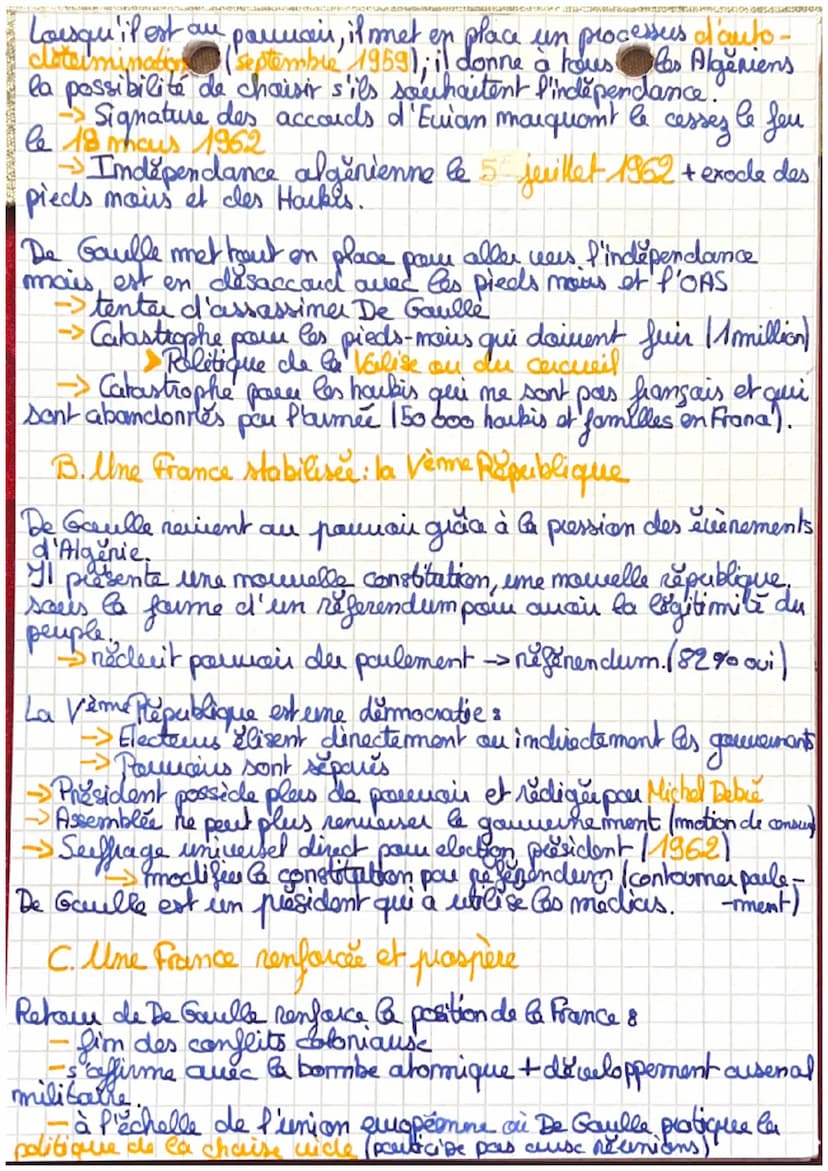 Lorsqu'il est au pouvoir, il met en place un processus d'auto-
détermination (septembre 1959); il donne à tous les Algériens
la possibilité de choisir s'ils souhaitent l'indépendance.
→ Signature des accords d'Evian marquant le cessez le feu
le 18 mars 1962
→ Indépendance algérienne le 5 juillet 1962 + exode des
pieds noirs et des Harkis.
De Gaulle met tout en place pour aller vers l'indépendance
mais, est en désaccord avec les pieds noirs et l'OAS
→ tenter d'assassiner De Gaulle
→ Catastrophe pour les pieds-noirs qui doivent fuir (1 million)
➤ Politique de la Valise ou du cercueil
→ Catastrophe pour les harkis qui ne sont pas français et qui
sont abandonnés par l'armée (50 000 harkis et familles en France).
B. Une France stabilisée : la Vème République
De Gaulle revient au pouvoir grâce à la pression des évènements
d'Algérie.
Il présente une nouvelle constitution, une nouvelle république,
sous la forme d'un référendum pour avoir la légitimité du
peuple.
→ réduit pouvoir du parlement → référendum. (82% oui)
La Vème République est une démocratie :
→ Electeurs élisent directement ou indirectement les gouvernants
→ Pouvoirs sont séparés
→ Président possède plus de pouvoir et rédigée par Michel Debré
→ Assemblée ne peut plus renverser le gouvernement (motion de censure)
→ Suffrage universel direct pour election président (1962)
→ modifier la constitution par référendum (contourner parle-
De Gaulle est un président qui a utilisé les medias. -ment)
C. Une France renforcée et prospère
Retour de De Gaulle renforce la position de la France :
- fin des conflits coloniaux
- s'affirme avec la bombe atomique + développement arsenal
militaire.
- à l'échelle de l'union européenne où De Gaulle pratique la
politique de la chaise vide (participe pas aux réunions)